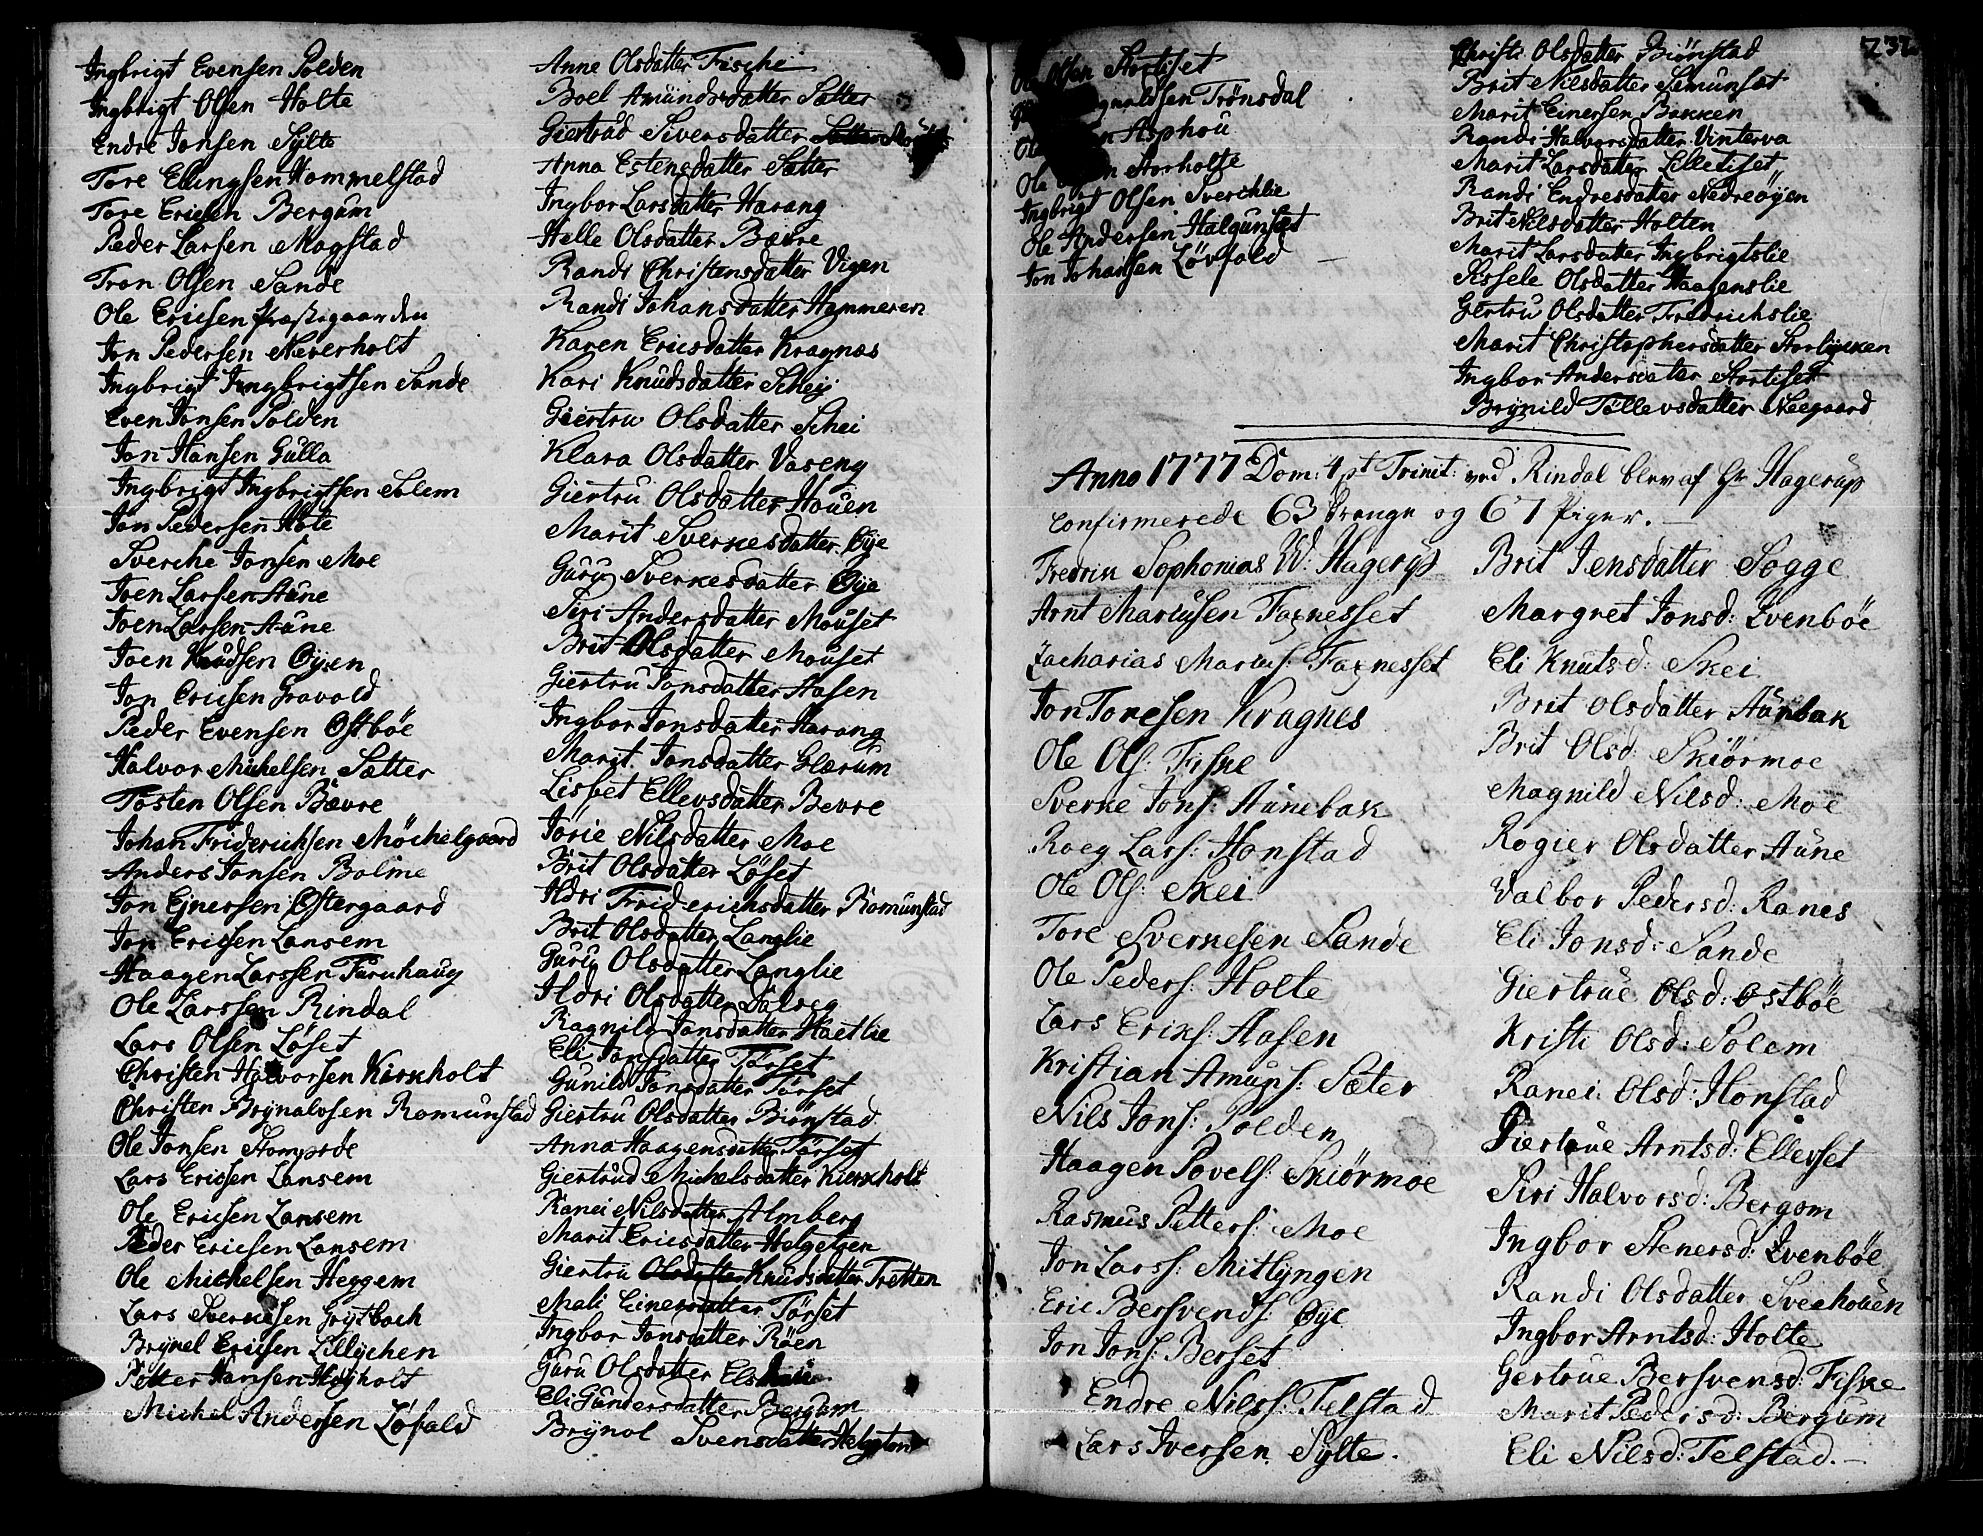 Ingbrigt Evensen Polden
Ingbrigt Olsen Holte
Endre Jonsen Sylte
Tore Ellingsen Hommelstad
Tore Ericsen Bergum
Peder Larsen Mogstad
Tron Olsen Sande
Ole Ericsen Præstegaarden
Jon Pedersen Neverholt
Ingbrigt Ingbrigtsen Sande
Even Jonsen Polden
Jon Hansen Gulla
Ingbrigt Ingbrigtsen Solem
Jon Pedersen Hote
Sverche Jonsen Moe
Joen Larsen Aune
Joen Larsen Aune
Joen Knudsen Øyen
Jon Ericsen Gravold
Peder Evensen Østbøe
Halvor Michelsen Sætter
Tosten Olsen Bævre
Johan Friderichsen Möchelgaard
Anders Jonsen Bolme
Jon Ejnersen Østergaard
Jon Ericsen Lansem
Haagen Larssen Furuhaug
Ole Larssen Rindal
Lars Olsen Löset
Christen Halvorsen Kirkholt
Christen Brynalvsen Romunstad
Ole Jonsen Stomprøe
Lars Ericsen Lansem
Ole Ericsen Lansem
Peder Ericsen Lansem
Ole Michelsen Heggem
Lars Sverkesen Grytbach
Brynel Ericsen Lillychen
Petter Hansen Høyholt
Michel Andersen Löfald
Anne Olsdatter Fische
Boel Amundsdatter Sætter
Giertrud Siversdatter
Anna Estensdatter Sætter
Ingbor Larsdatter Harang
Helle Olsdatter Bævre
Randi Christensdatter Vigen
Randi Johansdatter Hammeren
Karen Ericsdatter Kragnæs
Kari Knudsdatter Schej
Giertru Olsdatter Schei
Klara Olsdatter Vaseng
Giertru Olsdatter Houen
Marit Sverkesdatter Øye
Guru Sverkesdatter Øye
Siri Andersdatter Mouset
Brit Olsdatter Mouset
Giertru Jonsdatter Aasen
Ingbor Jonsdatter Harang
Marit Jonsdatter Glærum
Lisbet Ellevsdatter Bevre
Jorie Nilsdatter Moe
Brit Olsdatter Löset
Ildri Friderichsdatter Romunstad
Brit Olsdatter Langlie
Guru Olsdatter Langlie
Ildri Olsdatter Dalseg
Ragnild Jonsdatter Haetlie
Eli Jonsdatter Törset
Gunild Jonsdatter Törset
Giertru Olsdatter Biönstad
Anna Haagensdatter Törset
Giertrud Michelsdatter Kirkholt
Ranei Nilsdatter Almberg
Marit Ericsdatter Helgetøen
Giertru Olsdatter Knudsdatter Tretten
Mali Einersdatter Törset
Ingbor Jonsdatter Röen
Guru Olsdatter
Eli Gundersdatter Bergum
Brynol Svensdatter Helgeton
Ole Olsen Stortiset
Trönsdal
Asphou
Ole Storholte
Ingbrigt Olsen Sverchlie
Ole Andersen Halgunset
Jon Johansen Lövfald
232
Christi Olsdatter Biönstad
Brit Nilsdatter Semunset
Marit Einersen Bakken
Randi Halvorsdatter Vinterva
Marit Larsdatter Lilletiset
Randi Endresdatter Nedreöyen
Brit Nilsdatter Holten
Marit Larsdatter Ingbrigtslie
Sissele Olsdatter Haagenslie
Gertru Olsdatter Fredrichslie
Marit Christophersdatter Storlykken
Ingbor Andersdater Stortiset
Brynild Tollevsdatter Neegaard
Anno 1777 Dom: 4 pt Trinit: ved Rindal blev af Hr Hagerup
confirmerede 63 Drenge og 67 Piger.
Fredrik Sophonias W: Hagerup
Arnt Mariusen Faxnesset
Zacharias Marius: Faxnesset
Jon Toresen Kragnes
Ole Ols: Fiske
Sverke Jons: Aunebak
Roeg Lars: Honstad
Ole Ols: Skei
Tore Sverkesen Sande
Ole Peders: Holte
Lars Eriks: Aasen
Kristian Amups: Sæter
Nils Jons: Polden
Haagen Povels: Skiörmoe
Rasmus Petters: Moe
Jon Larss: Mitlyngen
Eric Bersvends: Øye
Jon Jons: Berset
Endre Nilss: Telstad
Lars Iversen Sylte.
Brit Jensdatter Sogge
Margret Jonsd: Evenbøe
Eli Knutsd: Skei
Brit Olsdatter Aunbak
Brit Olsd: Skiörmoe
Magnild Nilsd: Moe
Rogier Olsdatter Aune
Valbor Pedersd: Ranes
Eli Jonsd: Sande
Giertrue Olsd: Østbøe
Kristi Olsd: Solem
Ranei Olsd: Honstad
Giertrue Arntsd: Ellevset
Siri Halvorsd: Bergom
Ingbor Stenersd: Evenbøe
Randi Olsdatter Svechouen
Ingbor Arntsd: Holte
Gertrue Bersvensd: Fiske
Marit Pedersd: Bergum
Eli Nilsd: Telstad.